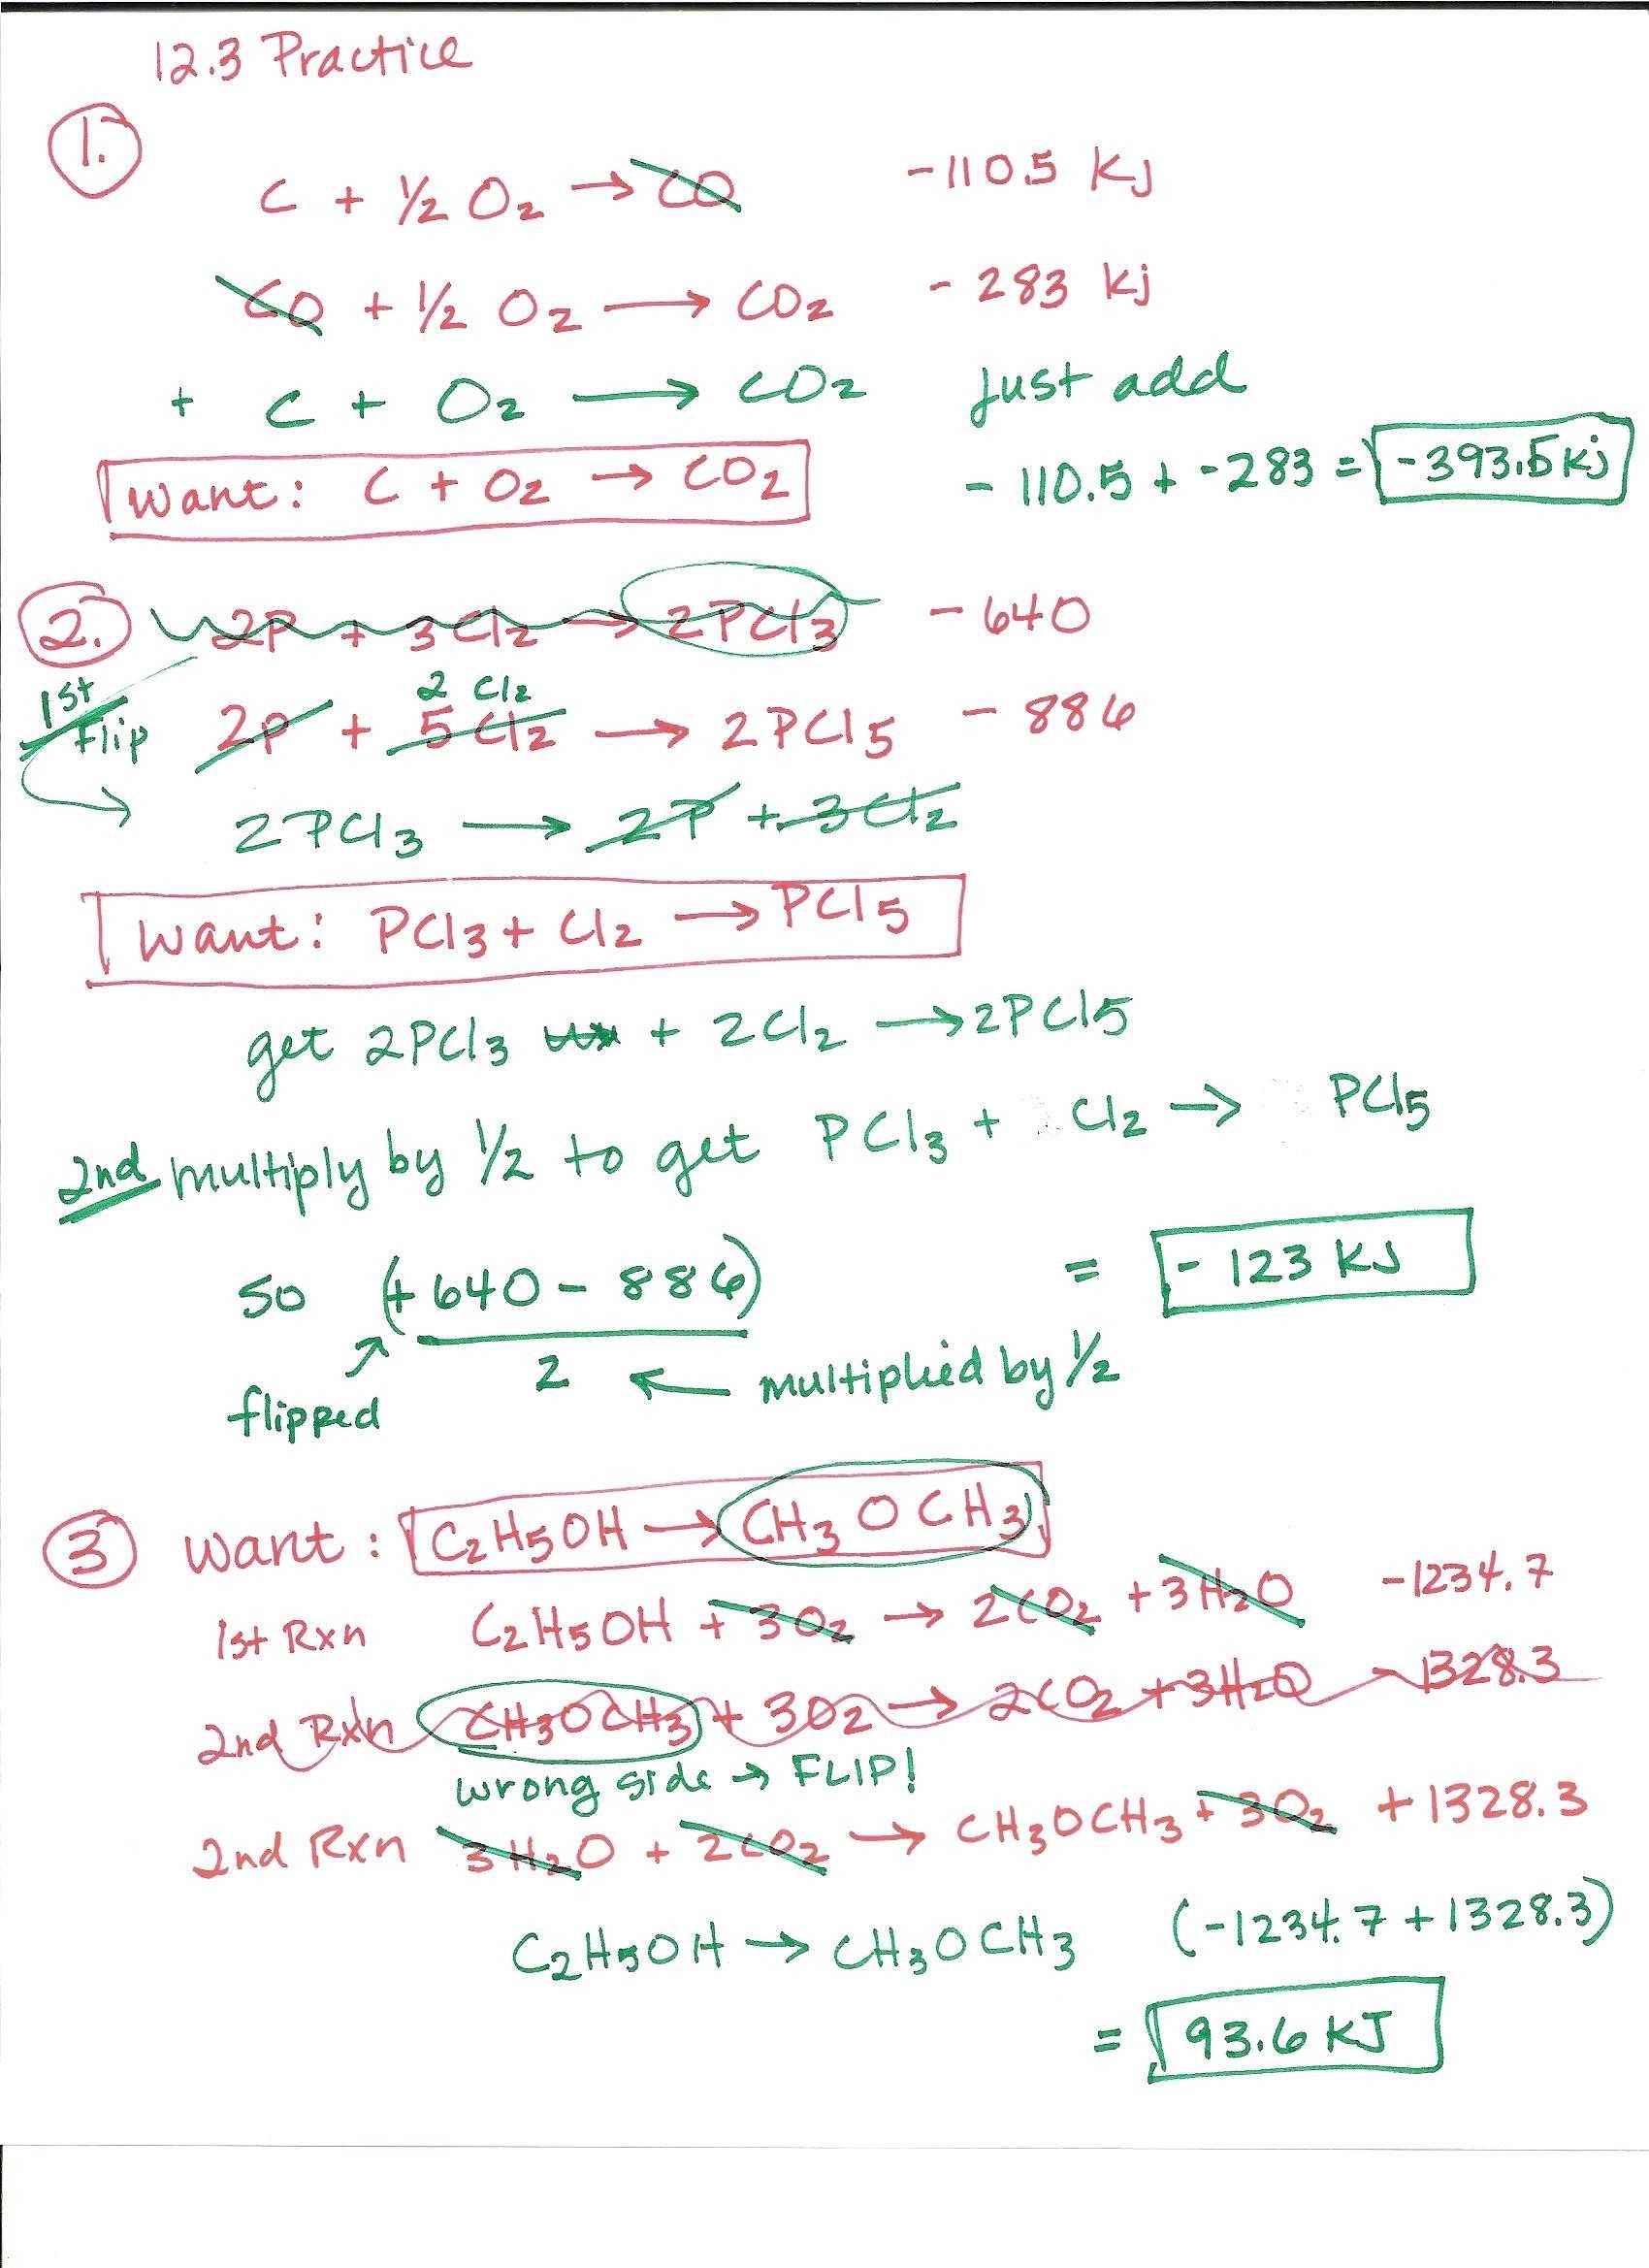 12.3 Practice
1.
C + ½ O₂ → CO -110.5 KJ
CO + ½ O₂ → CO₂ - 283 kj
+ C + O₂ → CO₂ just add
Want: C + O₂ → CO₂ - 110.5 + -283 = -393.5 kj
2. 2P + 3Cl₂ → 2PCl₃ - 640
1st Flip
2 Cl₂
2P + 5Cl₂ → 2PCl5 - 886
2PCl₃ → 2P + 3Cl₂
Want: PCl₃ + Cl₂ → PCl5
get 2PCl₃ + 2Cl₂ → 2PCl5
2nd multiply by ½ to get PCl₃ + Cl₂ → PCl₅
so (+640 - 886) = - 123 KJ
2 ← multiplied by ½
flipped
3 Want: C₂H₅OH → CH₃OCH₃
1st Rxn C₂H₅OH + 3O₂ → 2CO₂ + 3H₂O -1234.7
2nd Rxn CH₃OCH₃ + 3O₂ → 2CO₂ + 3H₂O - 1328.3
wrong side → FLIP!
2nd Rxn 3H₂O + 2CO₂ → CH₃OCH₃ + 3O₂ +1328.3
C₂H₅OH → CH₃OCH₃ (-1234.7 + 1328.3)
= 93.6 KJ